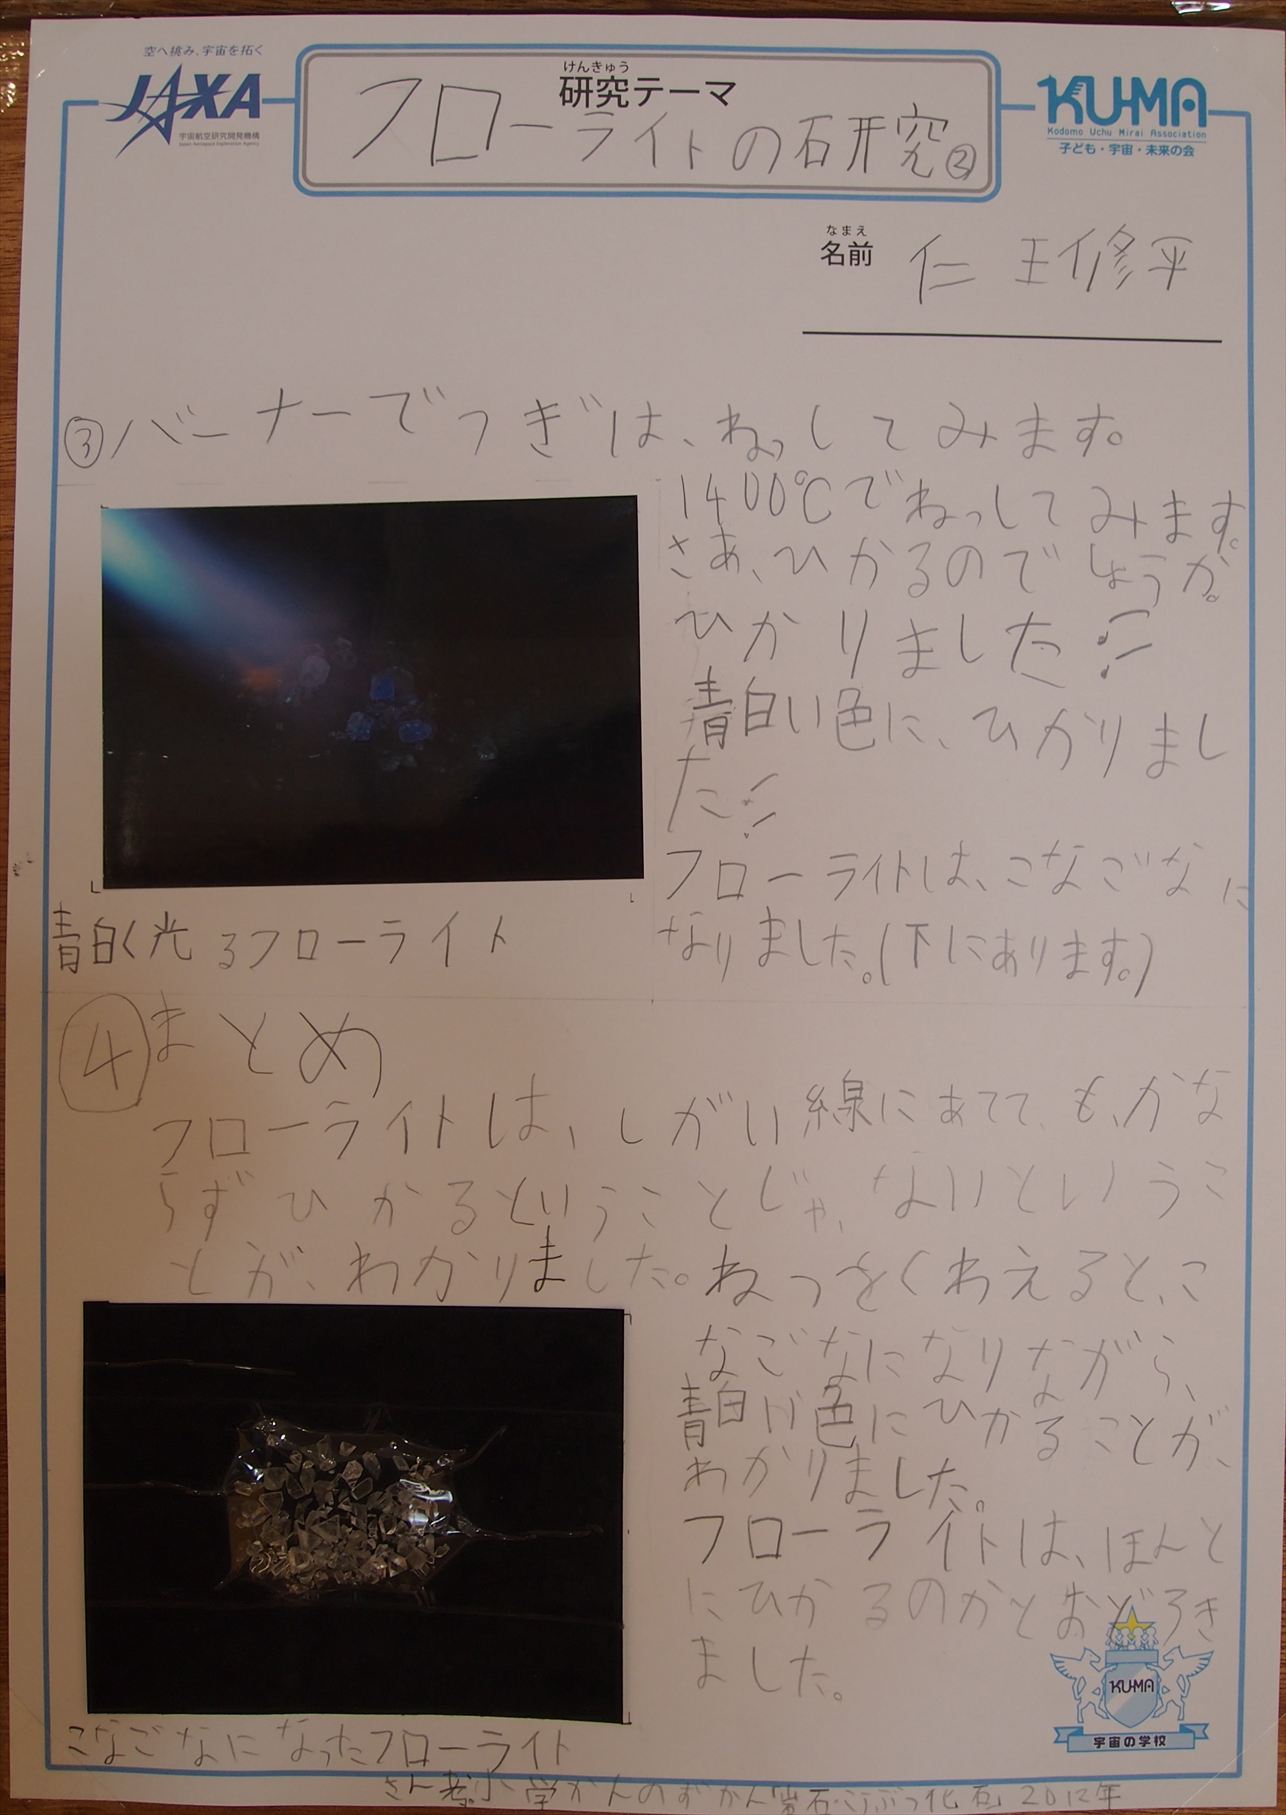 空へ挑み、宇宙を拓く
JAXA
宇宙航空研究開発機構
Japan Aerospace Exploration Agency
けんきゅう
研究テーマ
フローライトの石研究②
KU-MA
Kodomo Uchu Mirai Association
子ども・宇宙・未来の会
なまえ
名前 仁王修平
③バーナーでつぎは、ねっしてみます。
1400℃でねっしてみます。
さあ、ひかるのでしょうか。
ひかりました!!
青白い色に、ひかりまし
た!!
フローライトは、こなごなに
なりました。(下にあります。)
青白く光るフローライト
④まとめ
フローライトは、しがい線にあてて、も、かな
らずひかるということじゃ、ないというこ
とが、わかりました。ねつをくわえると、こ
なごなになりながら、
青白い色にひかることが、
わかりました。
フローライトは、ほんと
にひかるのかとおどろき
ました。
KU-MA
宇宙の学校
こなごなになったフローライト
さん考小学かんのずかん岩石・こうぶつ化石2012年